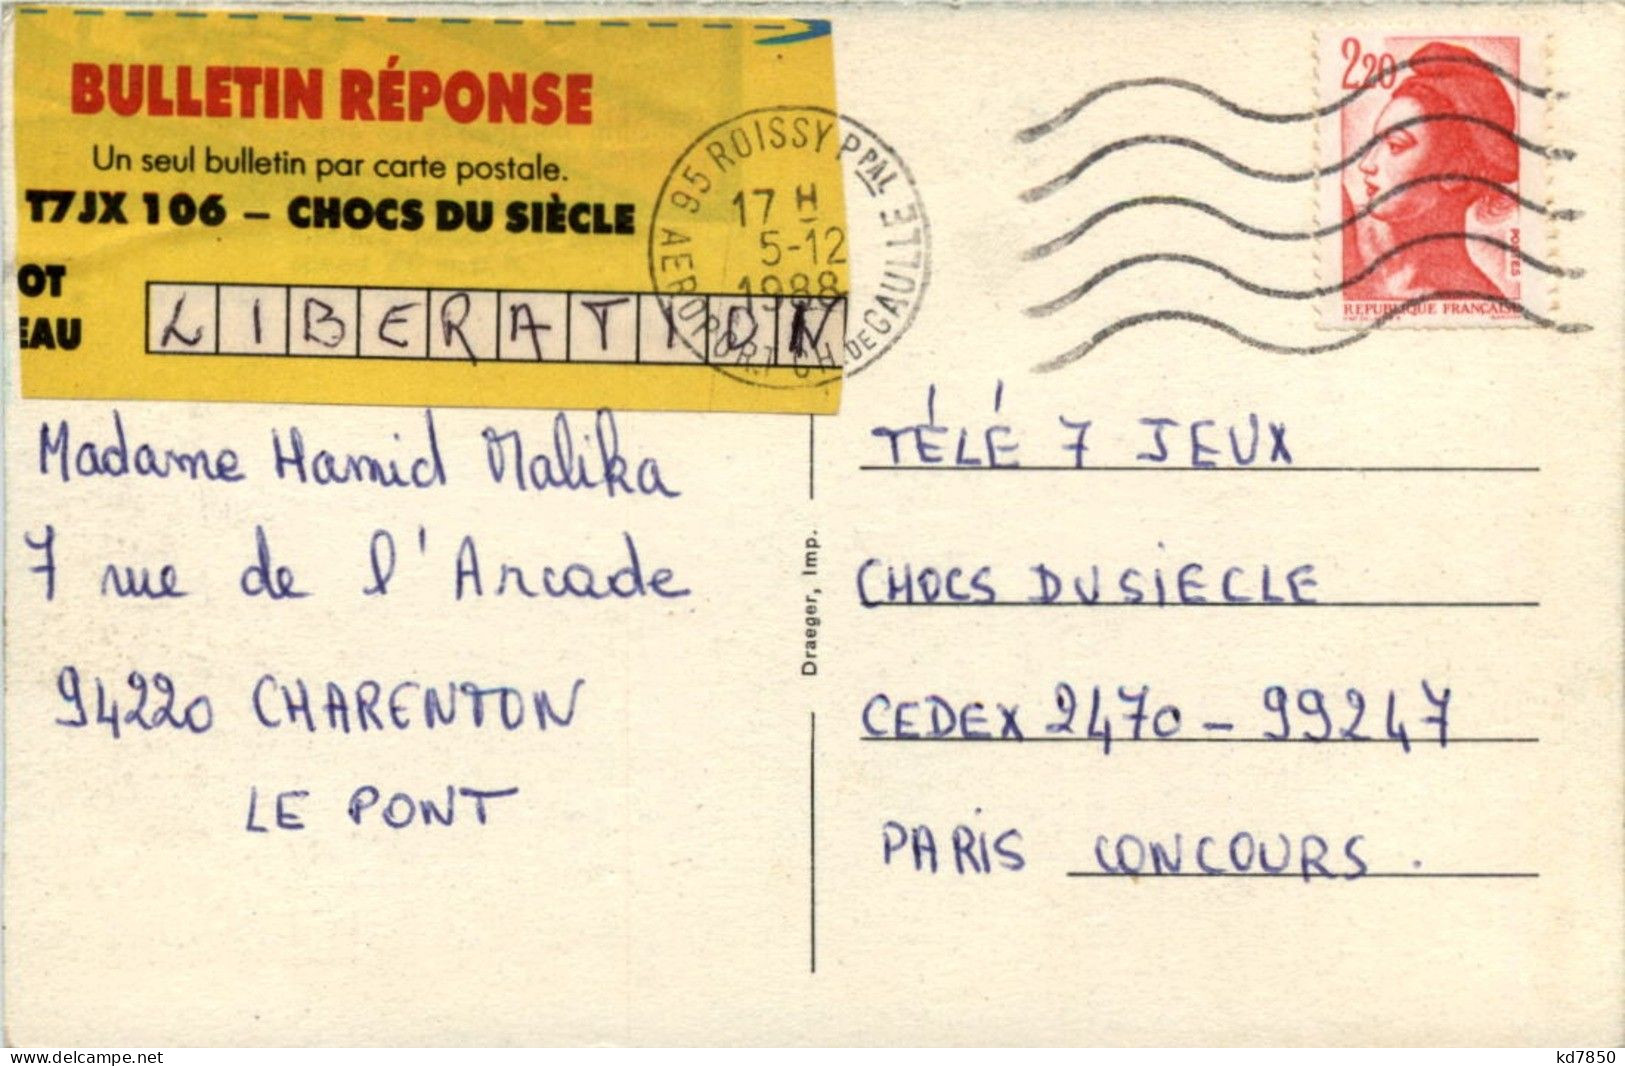 BULLETIN RÉPONSE
Un seul bulletin par carte postale.
T7JX 106 – CHOCS DU SIÈCLE
OT
EAU
LIBERATION
95 ROISSY PPAL
AEROPORT CH. DE GAULLE
17 H
5-12
1988
2,20
POSTES
REPUBLIQUE FRANÇAISE
Madame Hamid Malika
7 rue de l'Arcade
94220 CHARENTON
LE PONT
Draeger, Imp.
TÉLÉ 7 JEUX
CHOCS DU SIECLE
CEDEX 2470 – 99247
PARIS CONCOURS.
www.delcampe.net
kd7850